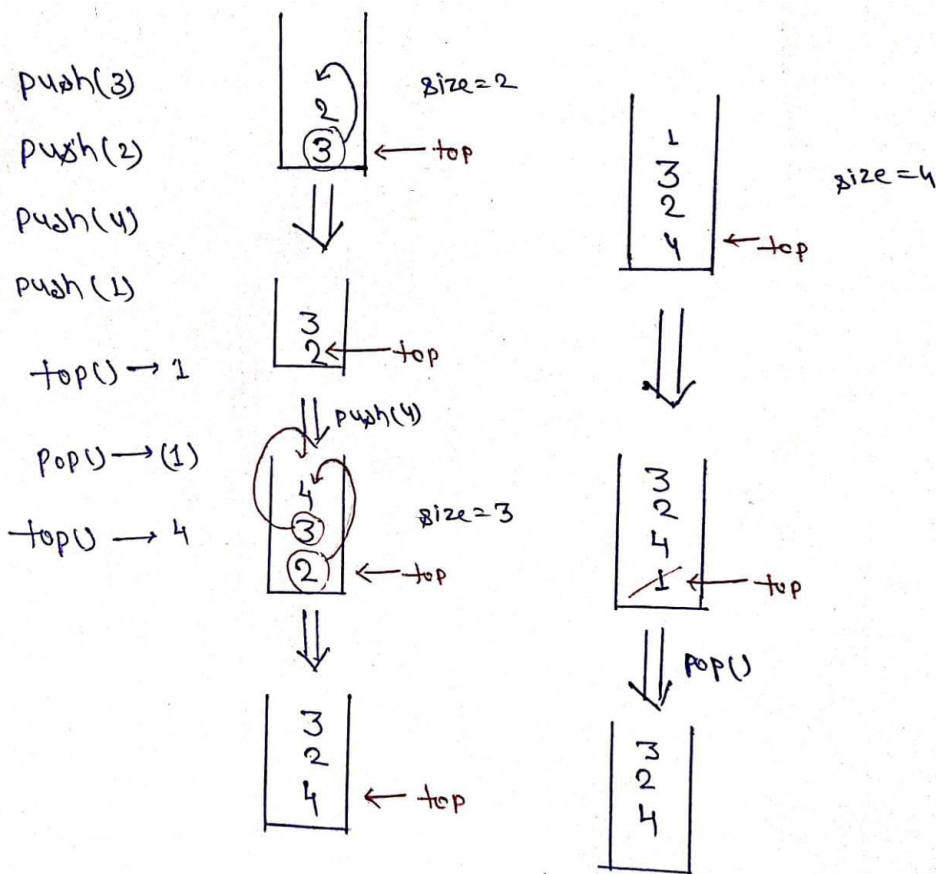 push(3)
push(2)
push(4)
push(1)
top() → 1
pop() → (1)
top() → 4
2
3
size=2
← top
3
2 ← top
push(4)
4
3
2
size=3
← top
3
2
4 ← top
1
3
2
4 ← top
size=4
3
2
4
1 ← top
pop()
3
2
4